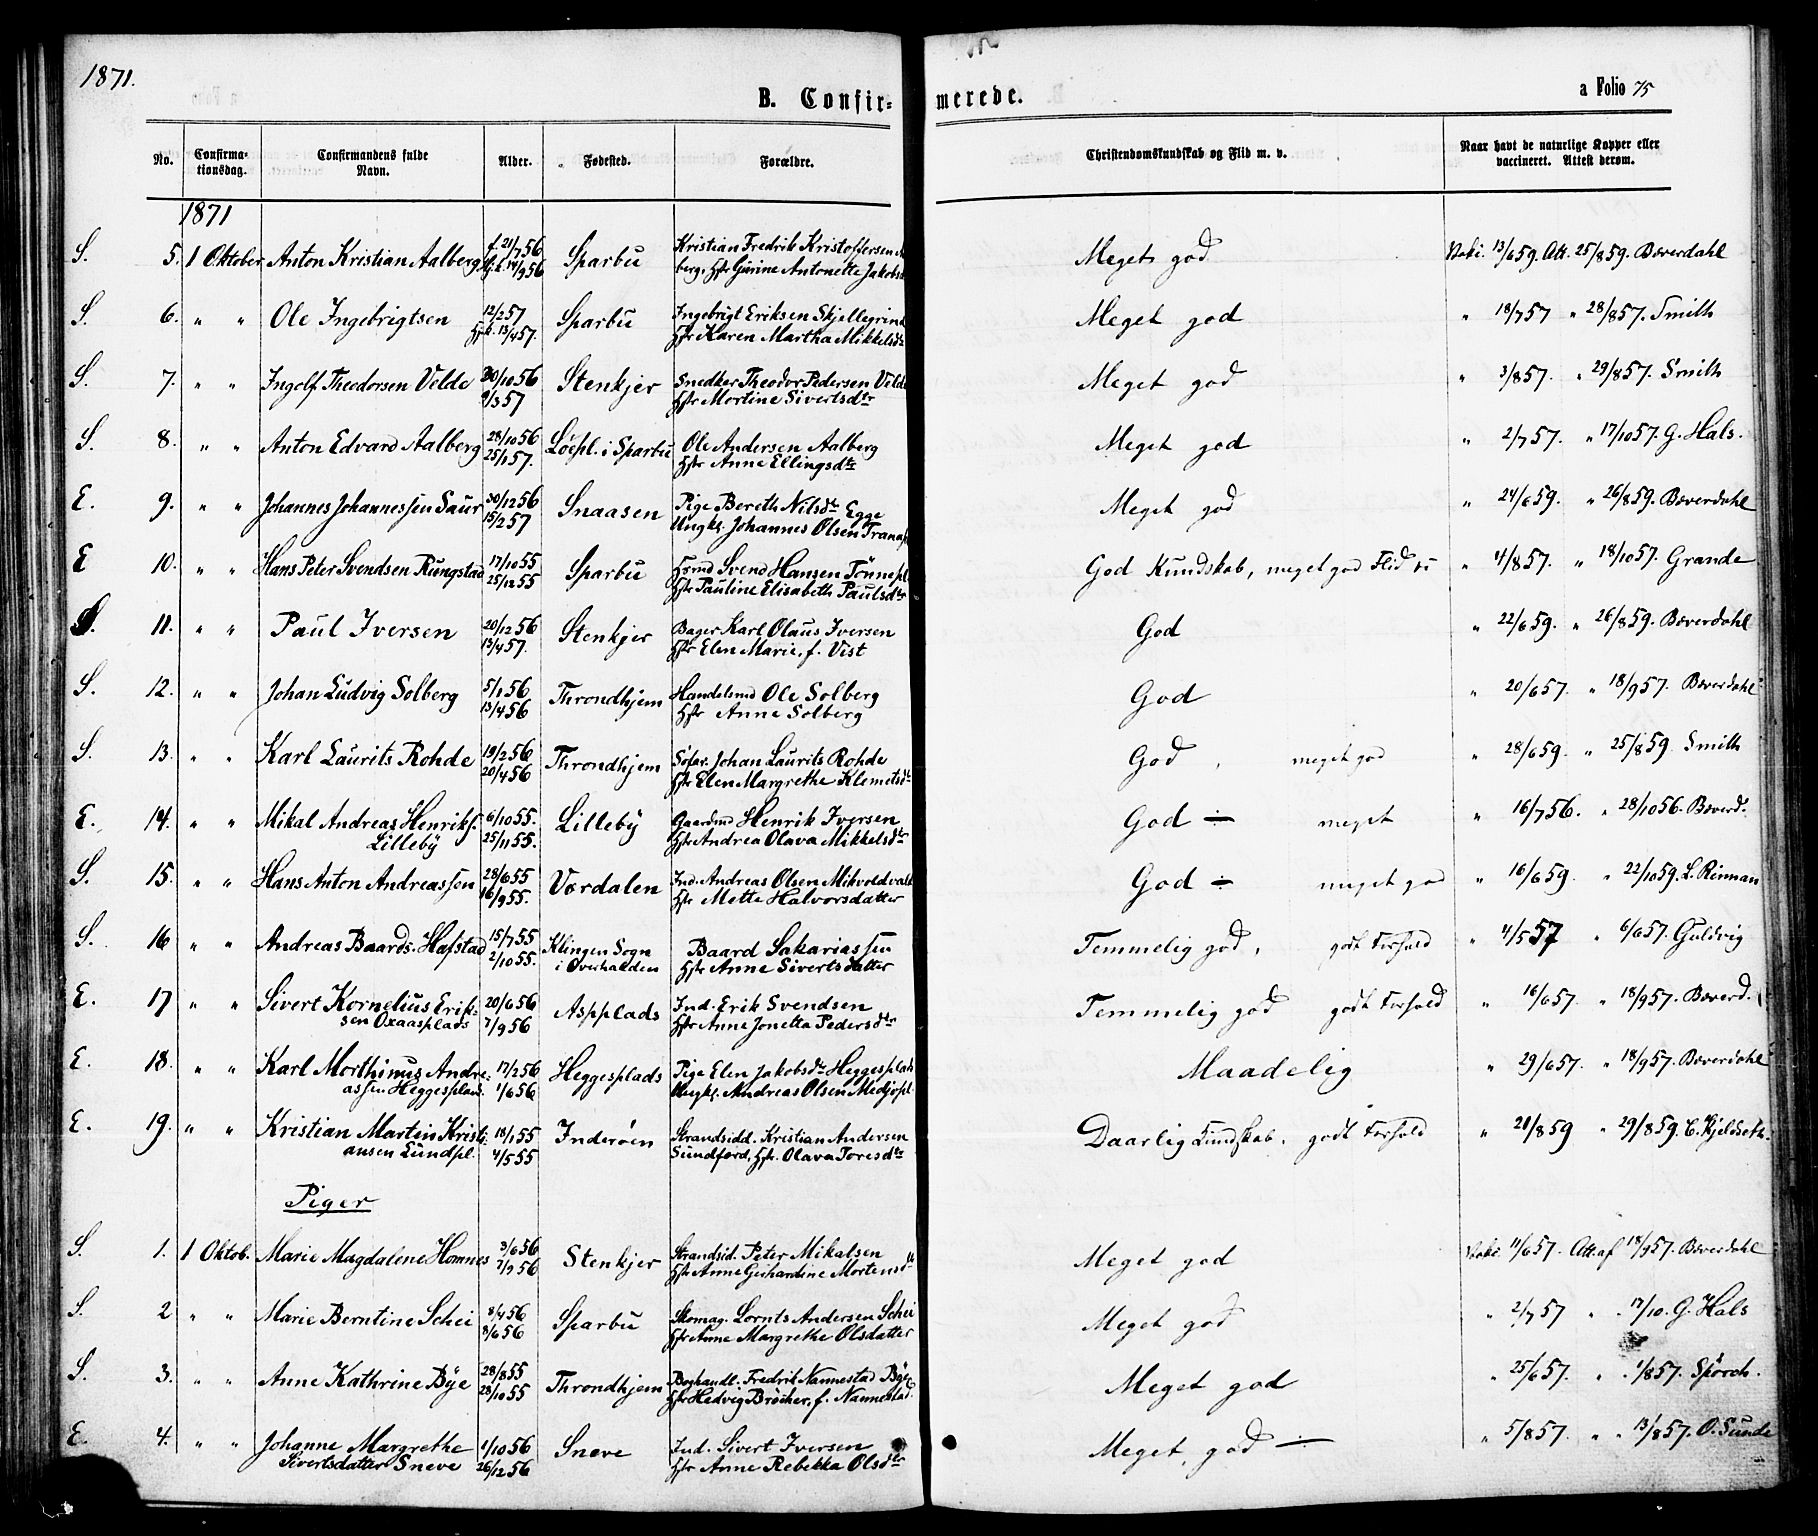 1871.
B. Confir-
merede.
a Folio 75
No.
Confirma-
tionsdag.
Confirmandens fulde
Navn.
Alder.
Fødested.
Forældre.
Christendomskundskab og Flid m. v.
Naar havt de naturlige Kopper eller
vaccineret. Attest derom.
1871
S. 5. 1 Oktober Anton Kristian Aalberg f. 21/7 56 Sparbu Kristian Fredrik Kristoffersen Meget god 13/6 59. Att. 25/8 59. Bæverdahl
14/9 56 berg, Hst Gurine Antonette Jakobs
S. 6. " " Ole Ingebrigtsen 12/2 57 Sparbu Ingebrigt Eriksen Meget god " 18/7 57 " 28/8 57. Smith
13/4 57. Hst Karen Martha Mikkelsdtr
S. 7. " " Ingolf Theodorsen Velde 30/10 56 Stenkjer Snedker Theodor Pedersen Velde Meget god " 3/8 57. " 29/8 57. Smith
9/3 57 Hst Mortine Sivertsdtr
S. 8. " " Anton Edvard Aalberg 28/10 56 Løepl. i Sparbu Ole Andersen Aalberg Meget god " 2/7 57. " 17/10 57. G. Hals.
25/1 57. Hst Anne Ellingsdtr
E. 9. " " Johannes Johannessen Saur 30/12 56 Snaasen Pige Bereth Nilsdtr Egge Meget god " 24/6 59. " 26/8 59. Bæverdahl
15/2 57 Ungk. Johannes Olsen
E 10. " " Hans Peter Svendsen Rungstad 17/10 55 Sparbu Svend Hansen Tönnepl God Kundskab, meget god Flid " 4/8 57. " 18/10 57. Grande
25/12 55 Hst Pauline Elisabeth Paulsdtr
S. 11. " " Paul Iversen 20/12 56 Stenkjer Bager Karl Olaus Iversen God " 22/6 59. " 26/8 59. Bæverdahl
13/4 57. Hst Elen Marie, f. Vist
S. 12. " " Johan Ludvig Solberg 5/1 56 Throndhjem Handelsmd Ole Solberg God " 20/6 57. " 18/9 57. Bæverdahl
13/4 56 Hst Anne Solberg
S. 13. " " Karl Laurits Rohde 19/2 56 Throndhjem Søfar. Johan Laurits Rohde God, meget god " 28/6 59. " 25/8 59. Smith
20/4 56 Hst Elen Margrethe Klemetsdtr
E. 14. " " Mikal Andreas Henriks. 6/10 55. Lilleby Gaardmd Henrik Iversen God ÷ meget " 16/7 56. " 28/10 56. Bæverd.
Lilleby 25/11 55. Hst Andrea Olava Mikkelsdtr
S. 15. " " Hans Anton Andreassen 28/6 55 Værdalen Ind. Andreas Olsen God ÷ meget god " 16/6 59. " 22/10 59. L. Rinnan
16/9 55. Hst Mette Halvorsdatter
S. 16 " " Andreas Baards. Hafstad 15/7 55 Klingen Sogn Baard Sakariassen Temmelig god, godt Forhold " 4/5 57 " 6/6 57. Guldvig
2/10 55. i Overhalden Hst Anne Sivertsdatter
E. 17 " " Sivert Kornelius Erik- 20/6 56 Aspplads Ind. Erik Svendsen Temmelig god godt Forhold " 16/6 57 " 18/9 57. Bæverd.
sen Oxaasplads 7/9 56 Hst Anne Jonetta Pedersdtr
E. 18. " " Karl Morthinus Andre- 17/2 56 Heggesplads Pige Elen Jakobsdtr Heggesplads Maadelig " 29/6 57. " 18/9 57. Bæverdahl
assen Heggesplads. 1/6 56 Ungk. Andreas Olsen
E. 19. " " Kristian Martin Kristi- 18/1 55 Inderøen Strandsidd. Kristian Andersen Daarlig Kundskab. godt Forhold " 21/8 59 " 29/8 59.
ansen Lundpl. 4/5 55 Sundfærd, Hst. Olava Toresdtr
Piger
S. 1. 1 Oktob. Marie Magdalene Homnes 3/6 56 Stenkjer Strandsid. Peter Mikalsen Meget god 11/6 57. Att af 18/9 57. Bæverdahl
7/9 56 Hst Anne Gerhardine Mortensdtr
S. 2 " " Marie Berntine Schei 8/4 56 Sparbu Skomag. Lornts Andersen Schei Meget god " 2/7 57 " 17/10. G. Hals
8/6 56 Hst Anne Margrethe Olsdatter
S. 3. " " Anne Kathrine Bye 28/8 55 Throndhjem Boghandl. Fredrik Nannestad Bye Meget god " 25/6 57. " 1/8 57. Spörch.
28/10 55 Hst Hedvig Bröcher, f. Nannestad
E. 4. " " Johanne Margrethe 1/10 56 Sneve Ind. Sivert Iversen Meget god ÷ " 5/8 57. " 13/8 57. O. Sunde
Sivertsdatter Sneve 26/12 56 Hst Anne Rebekka Olsdtr